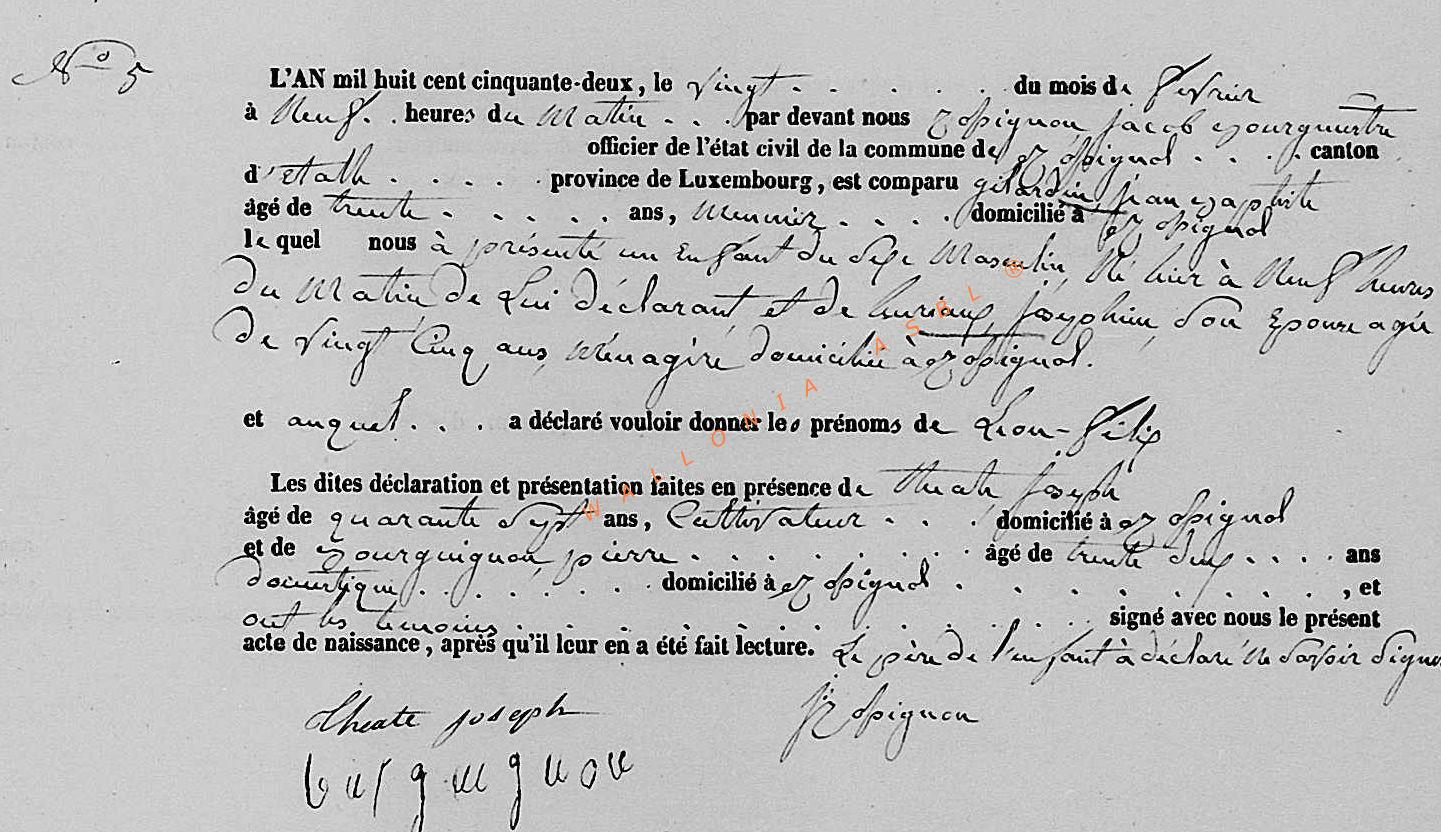 N° 5
L'AN mil huit cent cinquante-deux, le vingt . . . . . du mois de fevrier
à Neuf . . heures du Matin . . . par devant nous Rossignon jacob Bourgmestre
officier de l'état civil de la commune de Rossignol . . . . canton
d'Etalle . . . . . province de Luxembourg, est comparu gilardin jean Baptiste
âgé de trente . . . . . ans, Meunier . . . . domicilié à Rossignol
lequel nous à présenté un Enfant du Sexe Masculin, Né hier à Neuf heures
du Matin, de Lui déclarant et de huriaux, josephine, Son Epouse agée
de vingt Cinq ans, Ménagère domiciliée à Rossignol.
et auquel . . . a déclaré vouloir donner les prénoms de Léon-félix
Les dites déclaration et présentation faites en présence de theate joseph
âgé de quarante Sept ans, Cultivateur . . . domicilié à Rossignol
et de Bourguignon, pierre . . . . . . . . . âgé de trente deux . . . . ans
domestique . . . . . . domicilié à Rossignol . . . . . . . . , et
ont les temoins . . . . . . . . . . . . . . . signé avec nous le présent
acte de naissance, après qu'il leur en a été fait lecture. Le père de l'enfant à déclaré ne Savoir Signer
theate joseph
j Rossignon
burguignon
WALLONIA ASBL ®